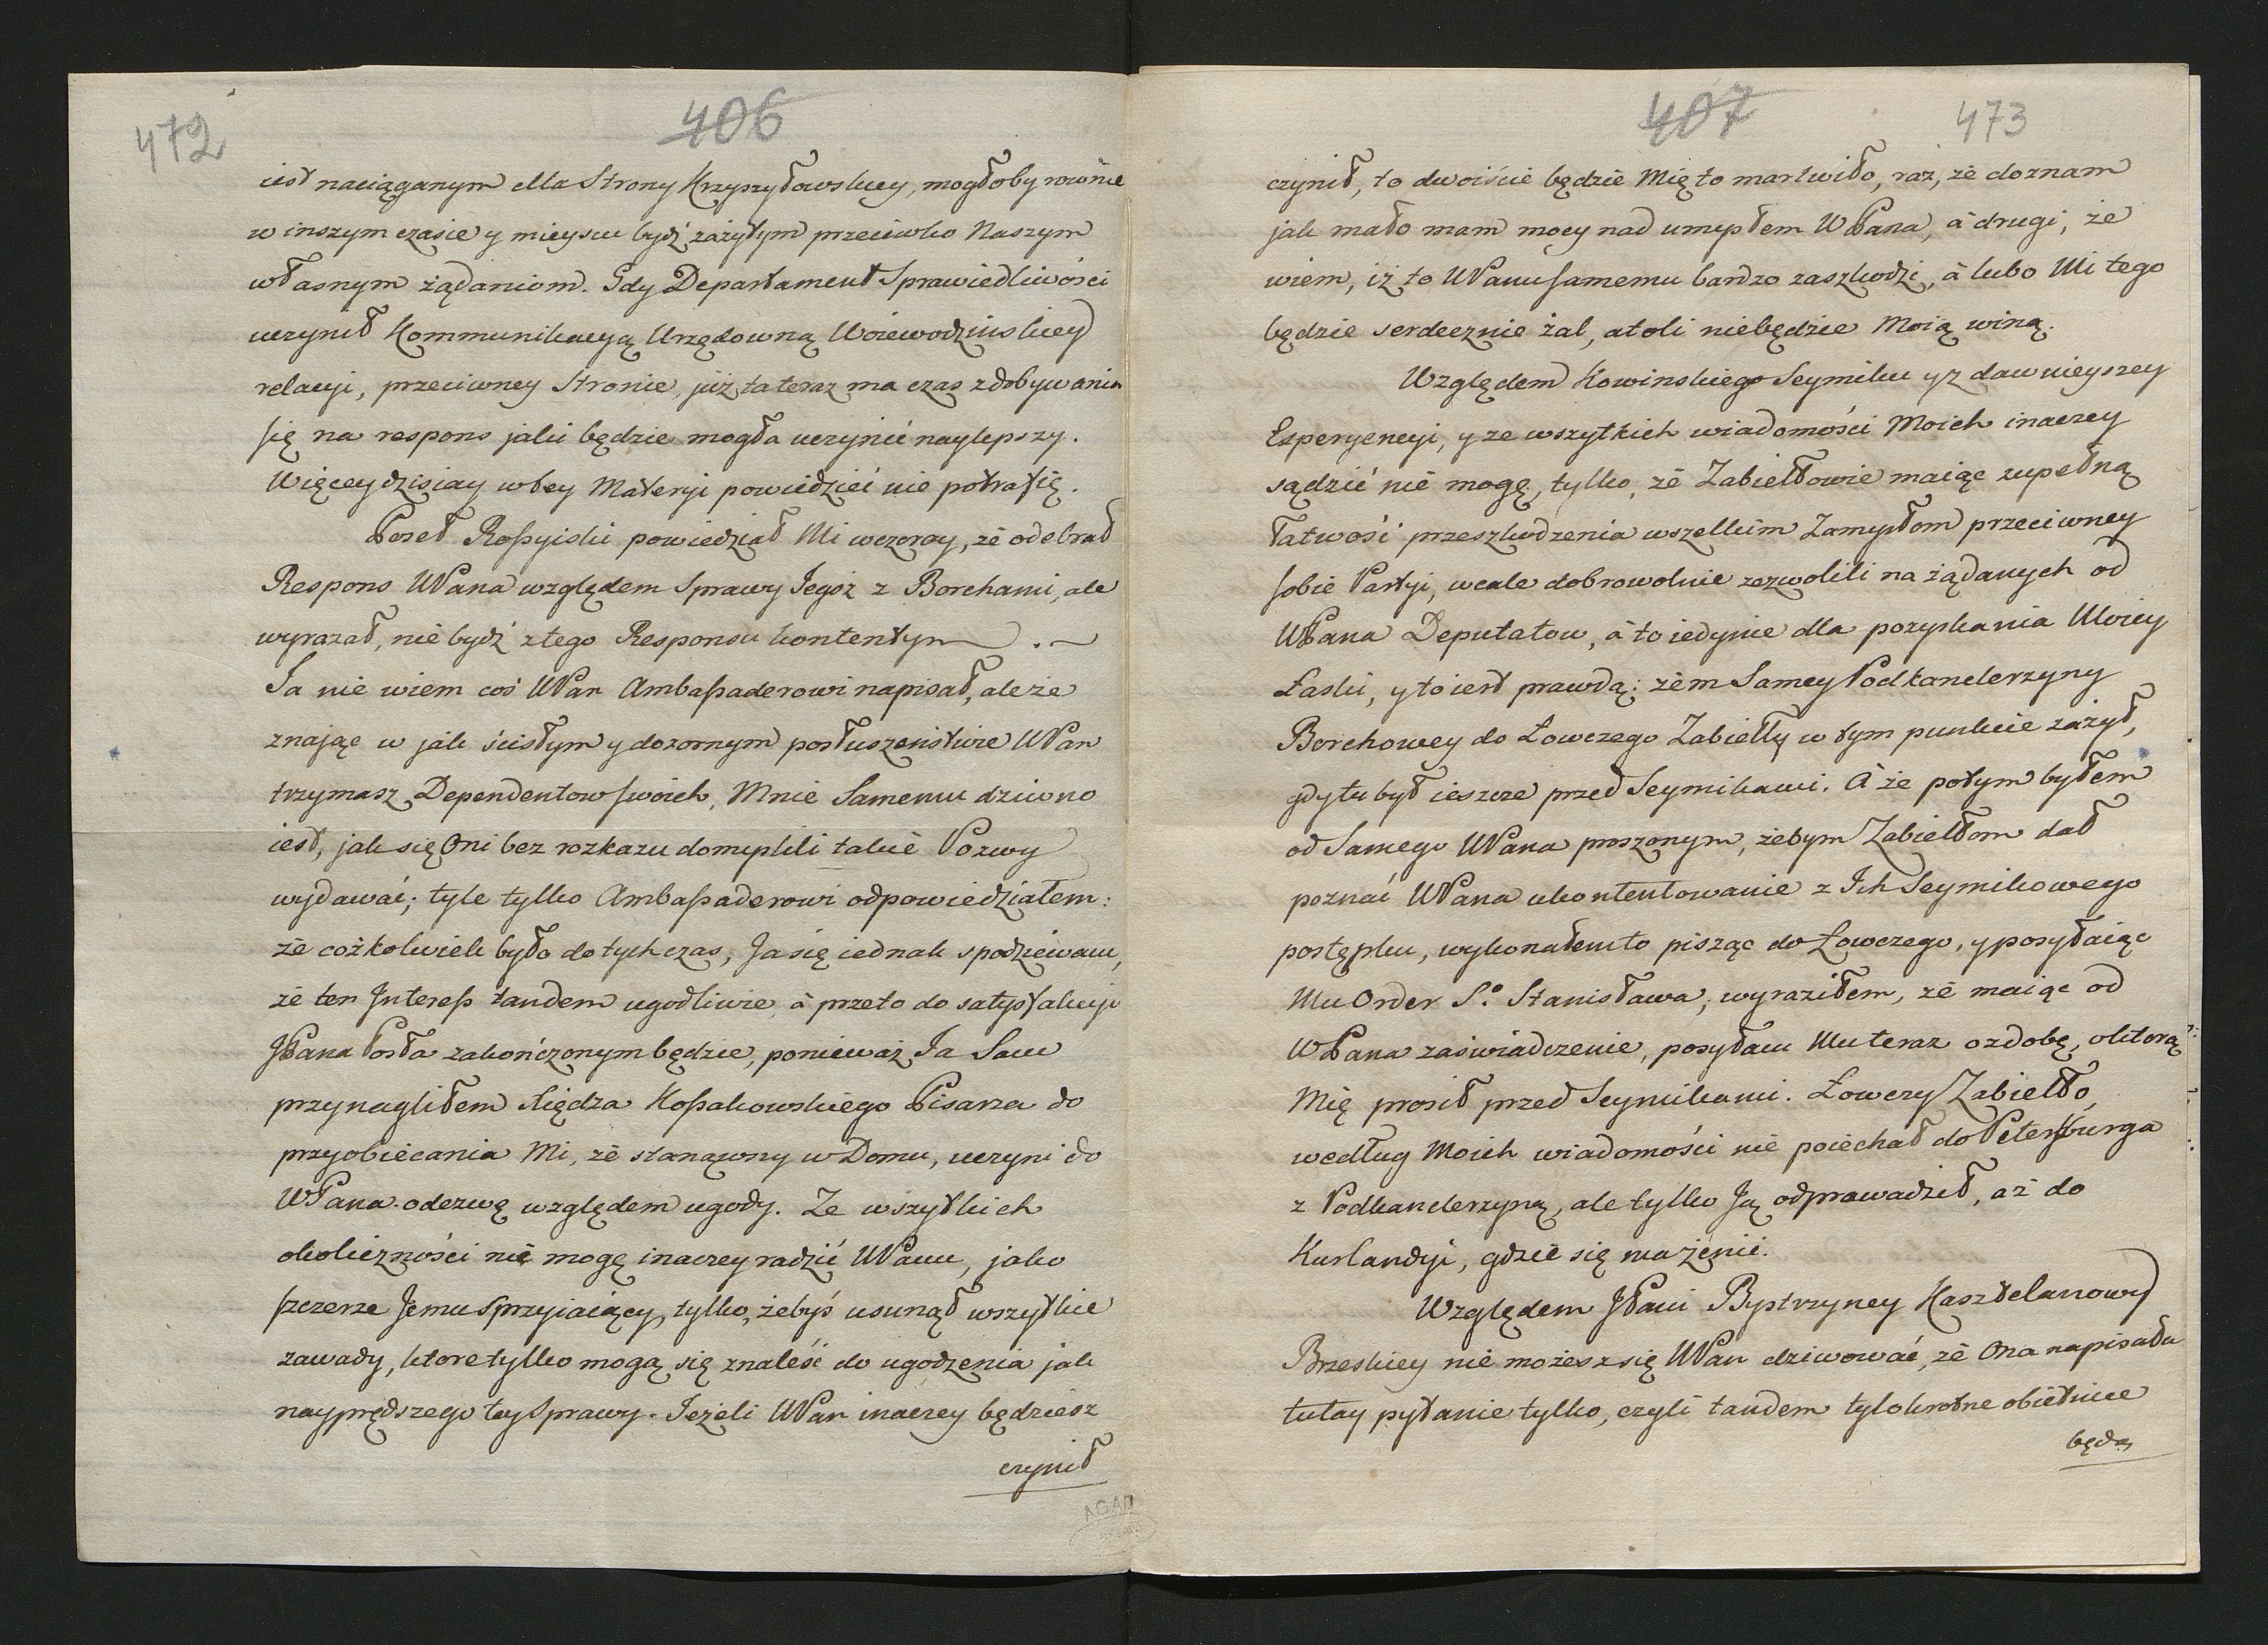 472
406
iest naciąganym dla Strony Krzyszyłowskiey, mogłoby rownie
w inszym czasie y mieyscu bydź zażytym przeciwko Naszym
własnym żądaniom. Gdy Departament Sprawiedliwości
uczynił Kommunikacyą Urzędowną Woiewodzinskiey
relacyi, przeciwney Stronie, już ta teraz ma czas zdobywania
się na respons jaki będzie mogła uczynić naylepszy.
Więcey dzisiay w tey Materyi powiedzieć nie potrafię.
Poseł Rossyiski powiedział Mi wczoray, że odebrał
Respons WPana względem Sprawy Jegoż z Borchami, ale
wyrazał, nie bydź z tego Responsu kontentym.
Ja nie wiem coś WPan Ambassaderowi napisał, ale że
znając w jak ścisłym y dozornym posłuszeństwie WPan
trzymasz Dependentow swoich, Mnie Samemu dziwno
iest, jak się Oni bez rozkazu domyslili takie Pozwy
wydawać; tyle tylko Ambassaderowi odpowiedziałem:
że cożkolwiek było dotychczas, Ja się iednak spodziewam,
że ten Interess tandem ugodliwie, à przeto do satysfakcyi
JPana Posła zakończonym będzie, ponieważ Ja Sam
przynagliłem Xiędza Kossakowskiego Pisarza do
przyobiecania Mi, że stanąwszy w Domu, uczyni do
WPana odezwę względem ugody. Ze wszytkich
okoliczności nie mogę inaczey radzić WPanu, jako
szczerze Jemu Sprzyiaiący, tylko, żebyś usunął wszytkie
zawady, ktore tylko mogą się znaleść do ugodzenia jak
nayprędszego tey Sprawy. Jeżeli WPan inaczey będziesz
czynił
407
473
czynił, to dwoiście będzie Mię to martwiło, raz, że doznam
jak mało mam mocy nad umysłem WPana, à drugi, że
wiem, iż to WPanu samemu bardzo zaszkodzi, à lubo Mi tego
będzie serdecznie żal, atoli niebędzie Moią winą.
Względem Kowinskiego Seymiku y z dawnieyszey
Experyencyi, y ze wszytkich wiadomości Moich inaczey
sądzić nie mogę, tylko, że Zabiełłowie maiąc zupełną
łatwość przeszkodzenia wszelkim Zamysłom przeciwney
sobie Partyi, wcale dobrowolnie zezwolili na żądanych od
WPana Deputatow, à to iedynie dla pozyskania Moiey
Łaski, y to iest prawdą: żem Samey Podkanclerzyny
Borchowey do Łowczego Zabiełły w tym punkcie zażył,
gdy tu był ieszcze przed Seymikami. A że potym byłem
od Samego WPana proszonym, żebym Zabiełłom dał
poznać WPana ukontentowanie z Ich Seymikowego
postępku, wykonałem to pisząc do Łowczego, y posyłaiąc
Mu Order S.º Stanisława, wyraziłem, że maiąc od
WPana zaświadczenie, posyłam Mu teraz ozdobę, o ktorą
Mię prosił przed Seymikami. Łowczy Zabiełło,
według Moich wiadomości nie poiechał do Petersburga
z Podkanclerzyną, ale tylko Ją odprowadził, aż do
Kurlandyi, gdzie się ma żenić.
Względem JPani Bystrzyney Kasztelanowy
Brzeskiey nie możesz się WPan dziwować, że Ona napisała
tutay pytanie tylko, czyli tandem tylokrotne obietnice
będą
AGAD